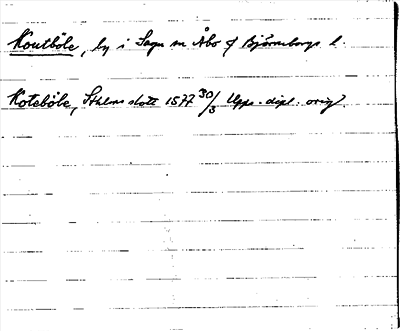 Koutböle, by i Sagu sn Åbo o Björneborgs l.
Koteböle, Sthlms slott 1577 30/3 Upps. dipl. orig.